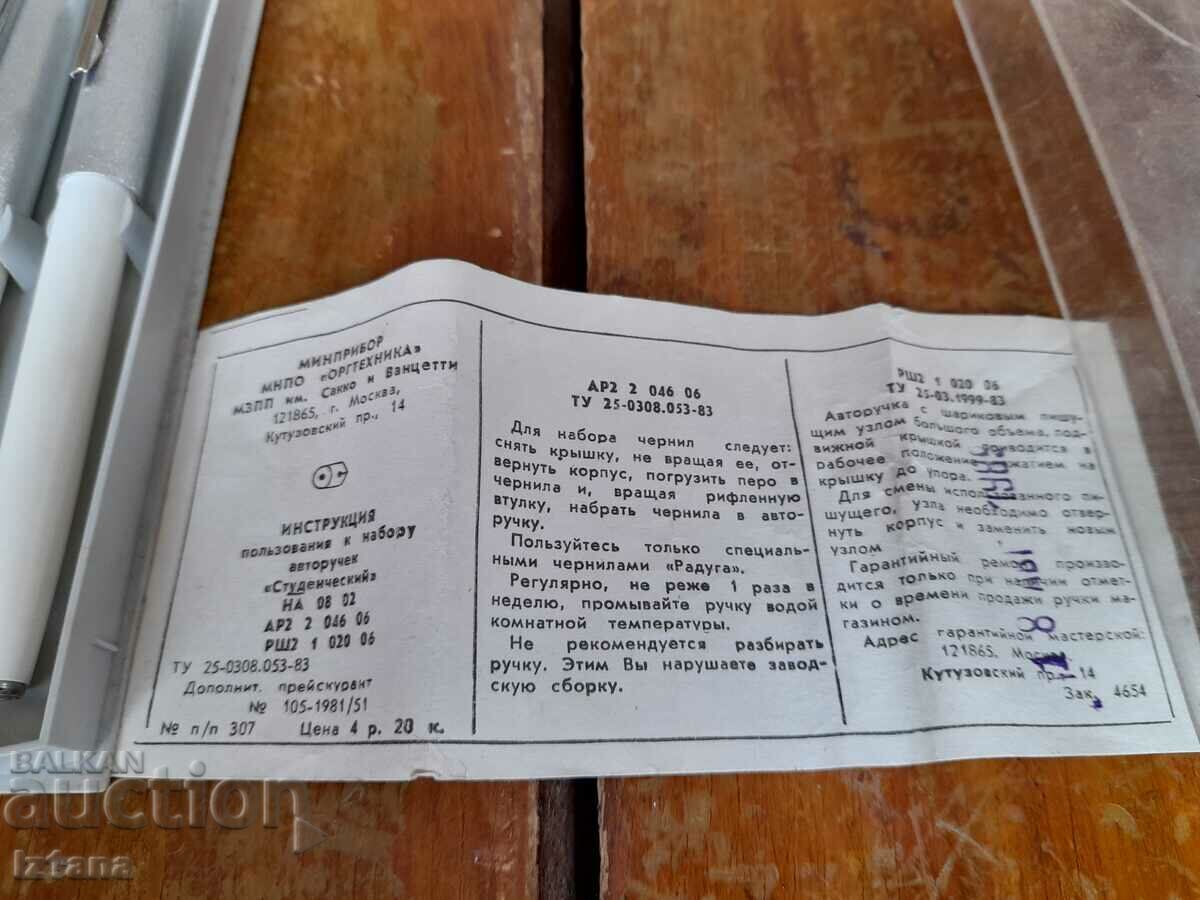 МИНПРИБОР
МНПО «ОРГТЕХНИКА»
МЗПП им. Сакко и Ванцетти
121865, г. Москва,
Кутузовский пр., 14
ИНСТРУКЦИЯ
пользования к набору
авторучек
«Студенческий»
НА 08 02
АР2 2 046 06
РШ2 1 020 06
ТУ 25-0308.053-83
Дополнит. прейскурант
№ 105-1981/51
№ п/п 307 Цена 4 р. 20 к.
АР2 2 046 06
ТУ 25-0308.053-83
Для набора чернил следует:
снять крышку, не вращая ее, от-
вернуть корпус, погрузить перо в
чернила и, вращая рифленную
втулку, набрать чернила в авто-
ручку.
Пользуйтесь только специаль-
ными чернилами «Радуга».
Регулярно, не реже 1 раза в
неделю, промывайте ручку водой
комнатной температуры.
Не рекомендуется разбирать
ручку. Этим Вы нарушаете завод-
скую сборку.
РШ2 1 020 06
ТУ 25-03.1999-83
Авторучка с шариковым пишу-
щим узлом большого объема, под-
вижной крышкой приводится в
рабочее положение нажатием на
крышку до упора.
Для смены использованного пи-
шущего, узла необходимо отвер-
нуть корпус и заменить новым
узлом
Гарантийный ремонт произво-
дится только при наличии отмет-
ки о времени продажи ручки ма-
газином.
Адрес гарантийной мастерской:
121865, Москва
Кутузовский пр., 14
Зак. 4654
BALKAN
auction
iztana